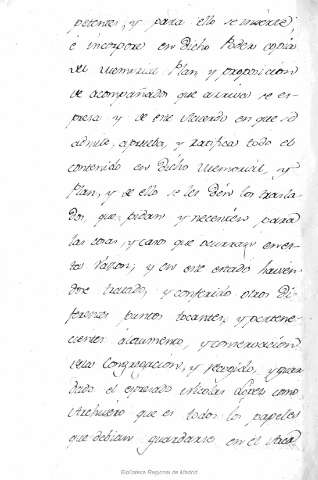 petentes, y para ello se inserte,
é incorpore en dicho Poder copia
del Memorial, Plan y proposicion
de acompañados que arriva se ex-
presa y de este Acuerdo en que se
admite, aprueba, y ratifica todo el
contenido en dicho Memorial, y
Plan, y de ello se les den los trasla-
dos, que pidan y necesiten para
las cosas, y casos que ocurran en es-
ta Razon; y en este estado havien-
dose tratado, y conferido otros di-
ferentes puntos tocantes, y pertene-
cientes al aumento, y conservacion
Congregacion, y
dado el expresado Nicolas Lopez como
Archivero que es todos los papeles
que debian guardarse en el Arca
Biblioteca Regional de Madrid